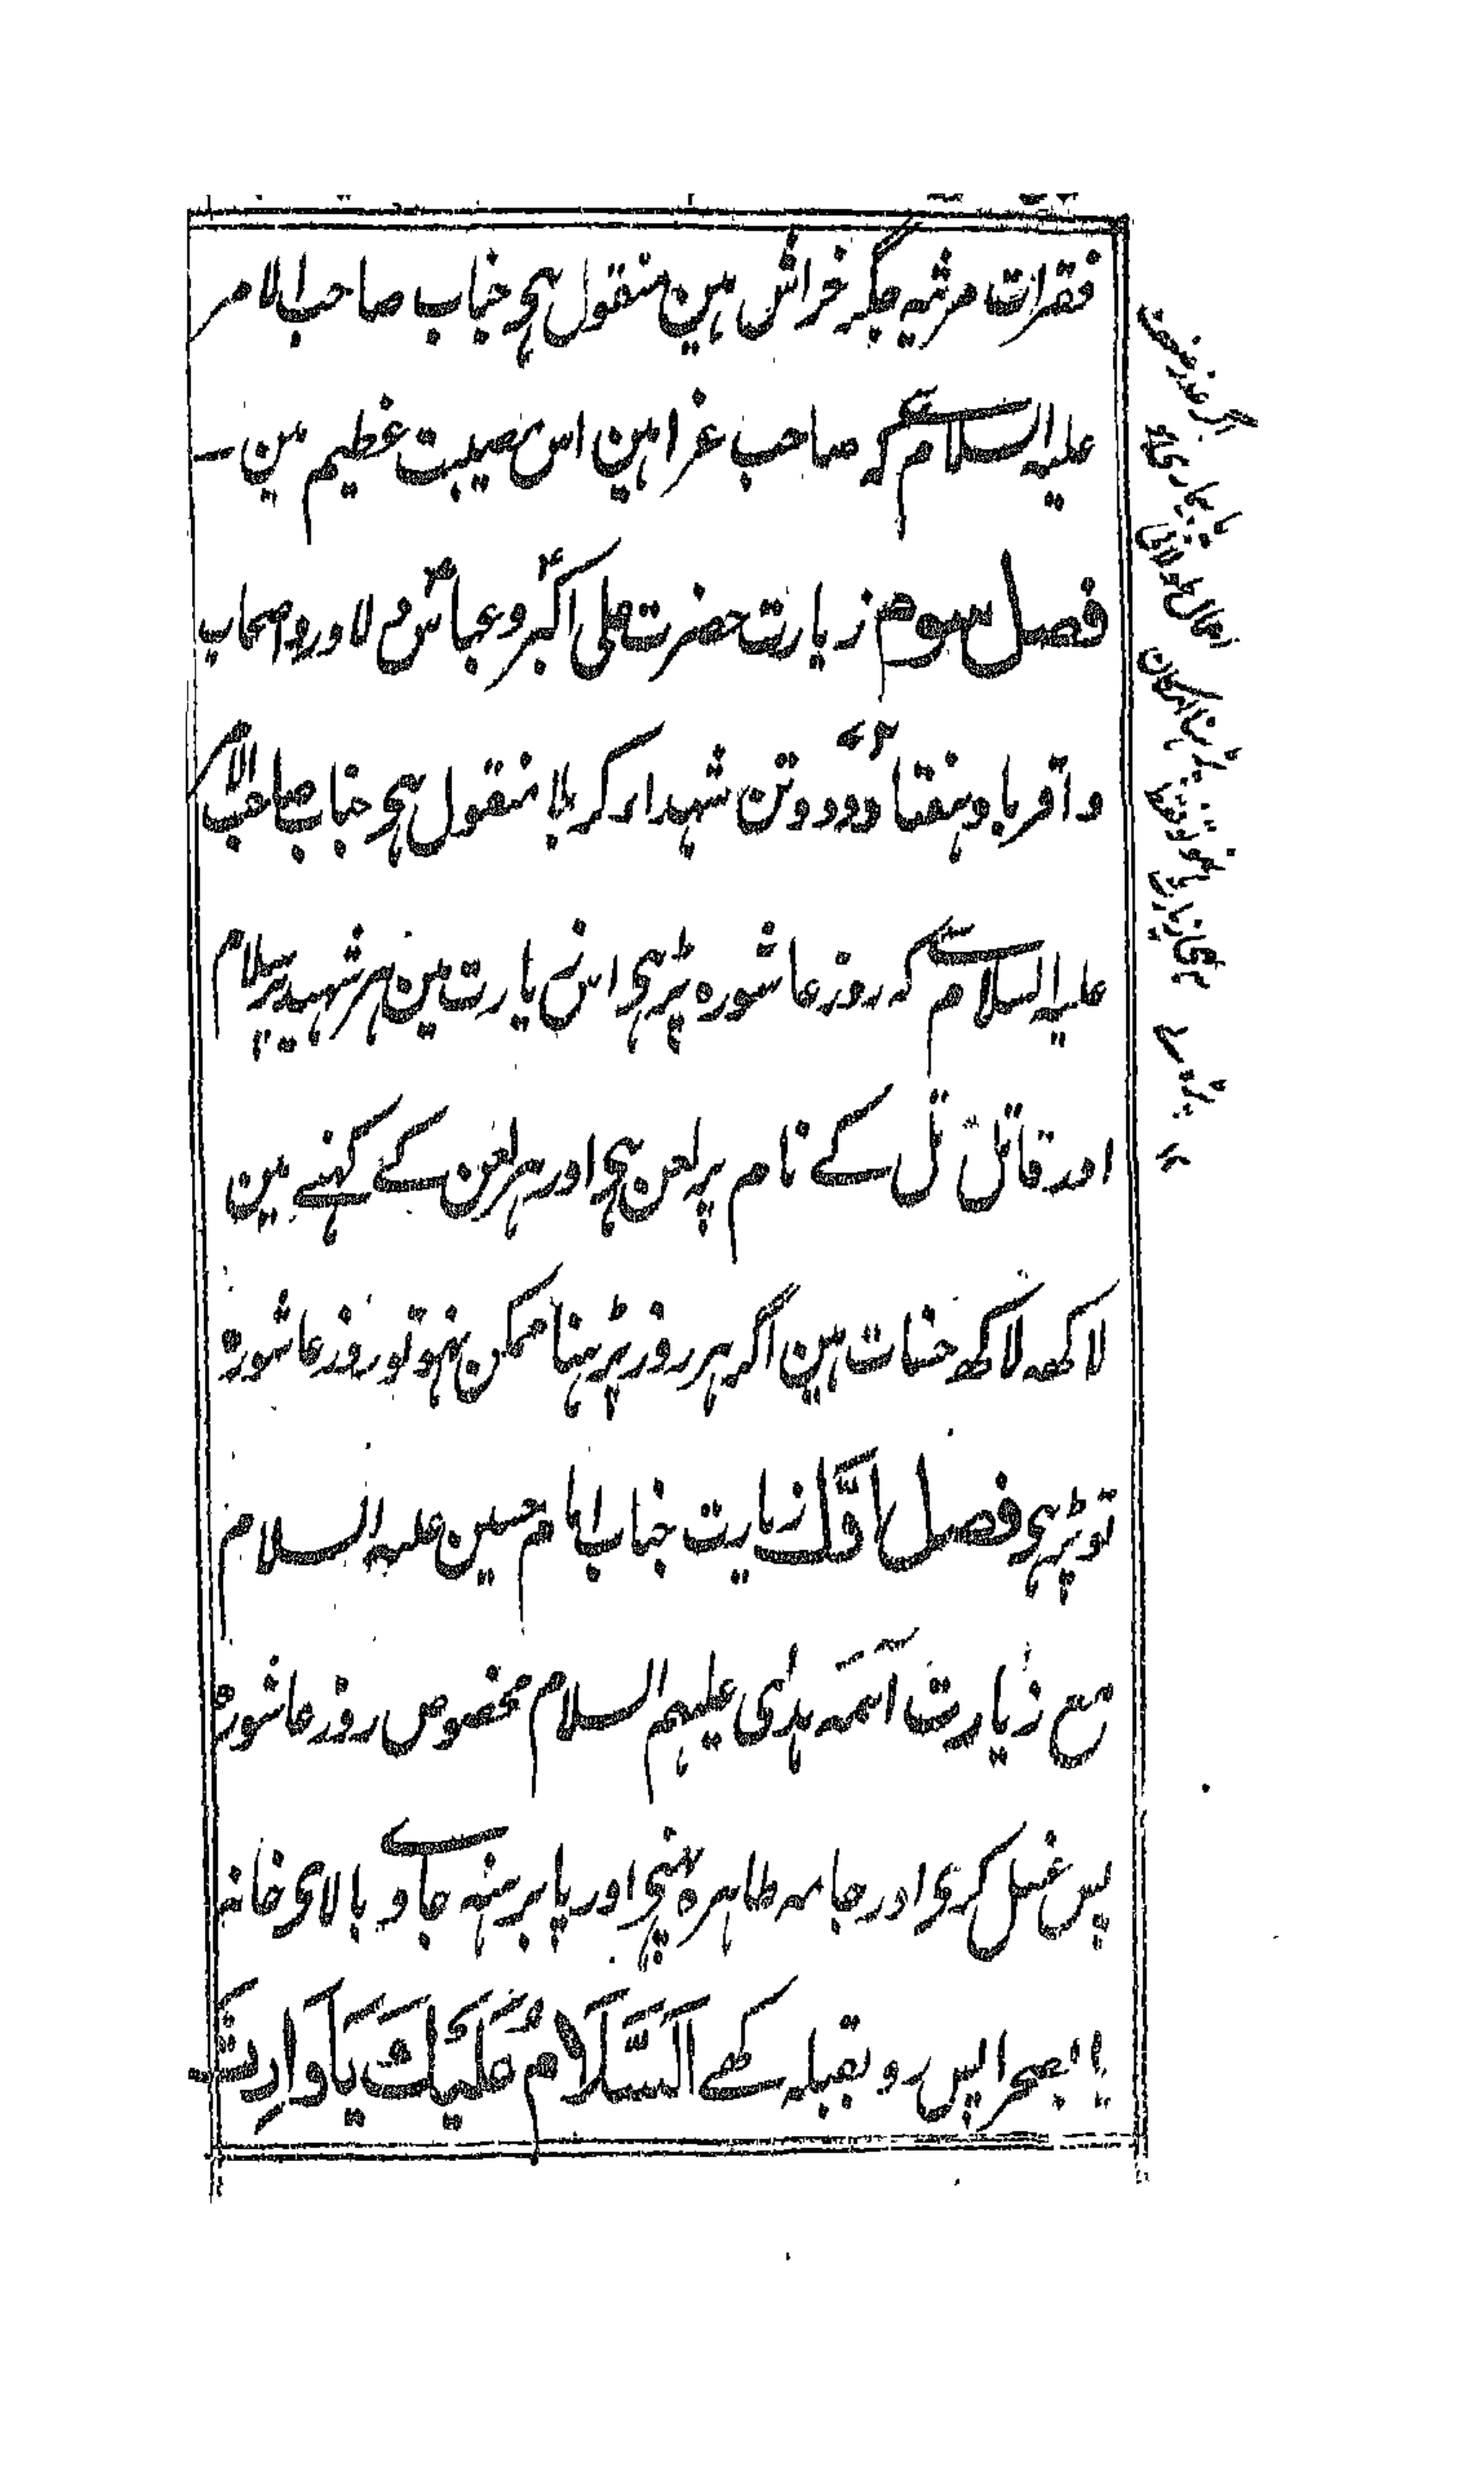 فقرات مرثیہ جگر خراش ہین منقول ہی جناب صاحب الامر
علیہ السلام سے کہ صاحب عزا ہین اس مصیبت عظیم مین ـ
فصل سوم زیارت حضرت علی اکبرؑ و عباسؑ دلاور و اصحاب
و اقربا و ہفتاد و دو تن شہدار کربلا منقول ہی جناب صاحب الامر
علیہ السلام سے کہ روز عاشورہ پڑہی اس زیارت مین ہر شہید پر سلام
اور قاتل کے نام پر لعن ہی اور ہر لعن کے کہنے مین
لاکھہ لاکھ حسنات ہین اگر ہر روز پڑہنا ممکن نہو تو روز عاشورہ
تو پڑہی فصل اوّل زیارت جناب امام حسین علیہ السلام
مع زیارت آئمہ ہدای علیہم السلام مخصوص روز عاشورہ
پس غسل کری اور جامہ طاہرہ پہنی اور پا برہنہ جاوے بالای خانہ
یا بصحرا پس رو بقبلہ کہے اَلسَّلَامُ عَلَیْكَ یَا وَارِثَ
اگر عذر ضعف
یا بیماری